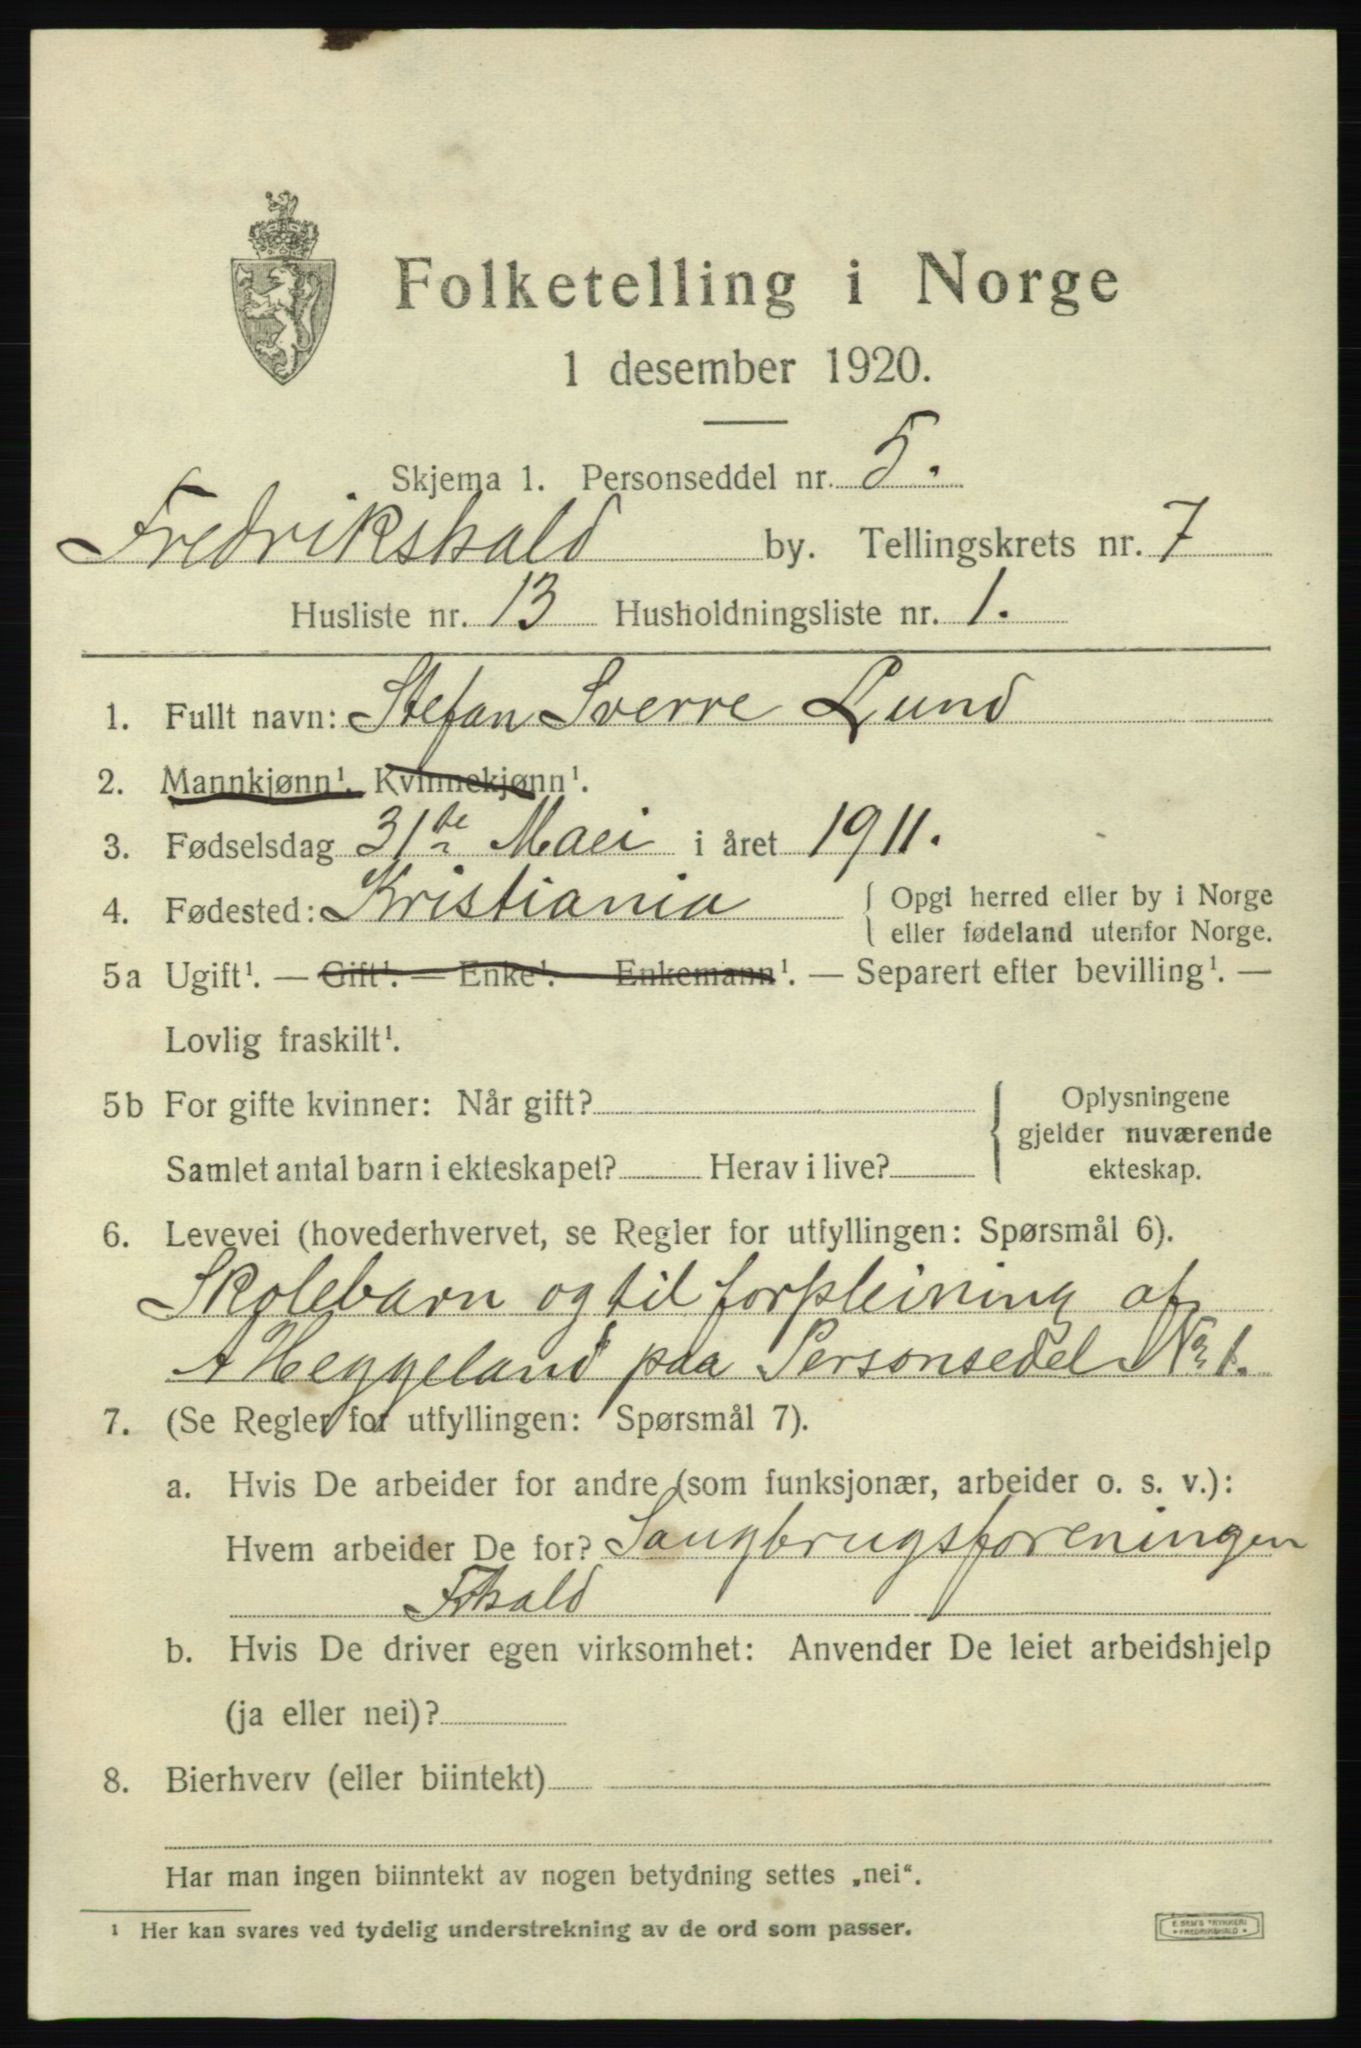 Folketelling i Norge
1 desember 1920.
Skjema 1. Personseddel nr. 5.
Fredrikshald by. Tellingskrets nr. 7
Husliste nr. 13 Husholdningsliste nr. 1.
1. Fullt navn: Stefan Sverre Lund
2. Mannkjønn¹. Kvinnekjønn¹.
3. Fødselsdag 31te Maei i året 1911.
4. Fødested: Kristiania { Opgi herred eller by i Norge
eller fødeland utenfor Norge.
5a Ugift¹. — Gift¹. — Enke¹. — Enkemann¹. — Separert efter bevilling¹. —
Lovlig fraskilt¹.
5b For gifte kvinner: Når gift? { Oplysningene
gjelder nuværende
Samlet antal barn i ekteskapet? Herav i live? ekteskap.
6. Levevei (hovederhvervet, se Regler for utfyllingen: Spørsmål 6).
Skolebarn og til forpleining af
A Heggeland paa Personsedel No 1.
7. (Se Regler for utfyllingen: Spørsmål 7).
a. Hvis De arbeider for andre (som funksjonær, arbeider o. s. v.):
Hvem arbeider De for? Saugbrugsforeningen
Fhald
b. Hvis De driver egen virksomhet: Anvender De leiet arbeidshjelp
(ja eller nei)?
8. Bierhverv (eller biintekt)
Har man ingen biinntekt av nogen betydning settes „nei“.
¹ Her kan svares ved tydelig understrekning av de ord som passer.